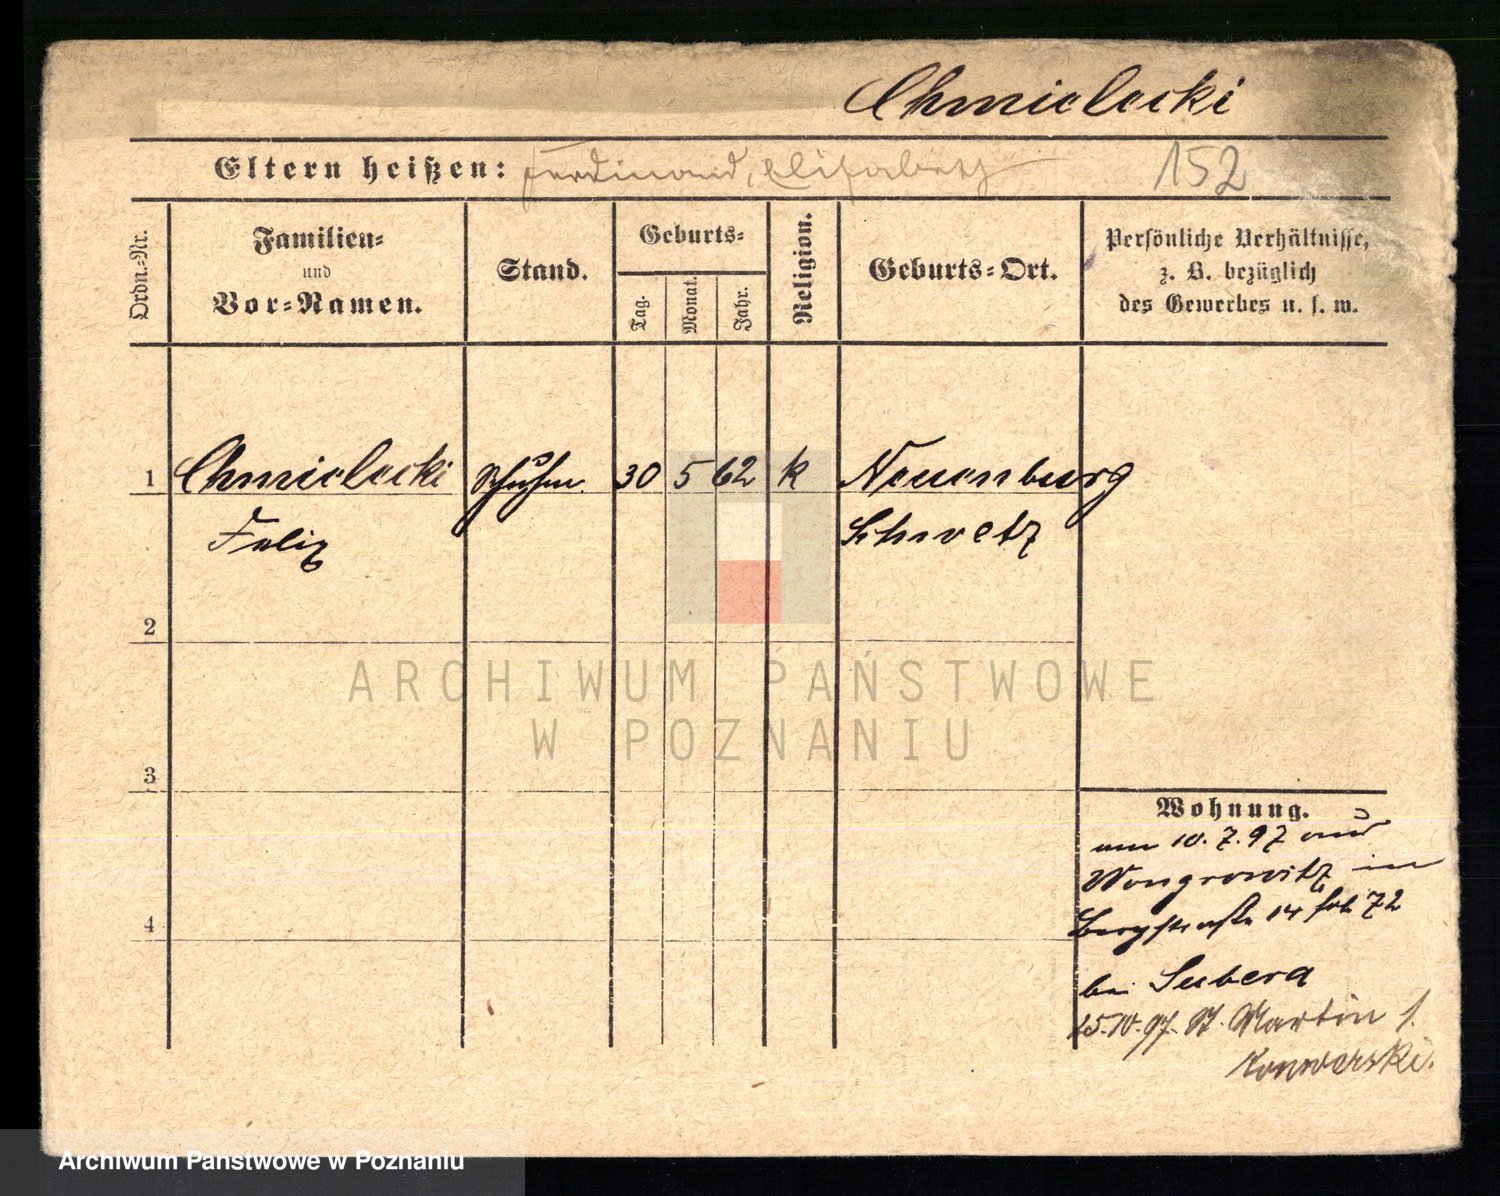 Chmielecki
Eltern heißen: Ferdinand, Elisabeth 152
Ordn.-Nr.
Familien-
und
Vor-Namen.
Stand.
Geburts-
Tag.
Monat.
Jahr.
Religion.
Geburts-Ort.
Persönliche Verhältnisse,
z. B. bezüglich
des Gewerbes u. s. w.
1 Chmielecki Schuhm. 30 5 62 k Neuenburg
Felix Schwetz
2
ARCHIWUM PAŃSTWOWE
W POZNANIU
3
Wohnung.
am 10.7.97 aus
Wongrowitz in
4
Bergstraße 14 72
bei Subera
15.10.97. St. Martin 1.
Archiwum Państwowe w Poznaniu